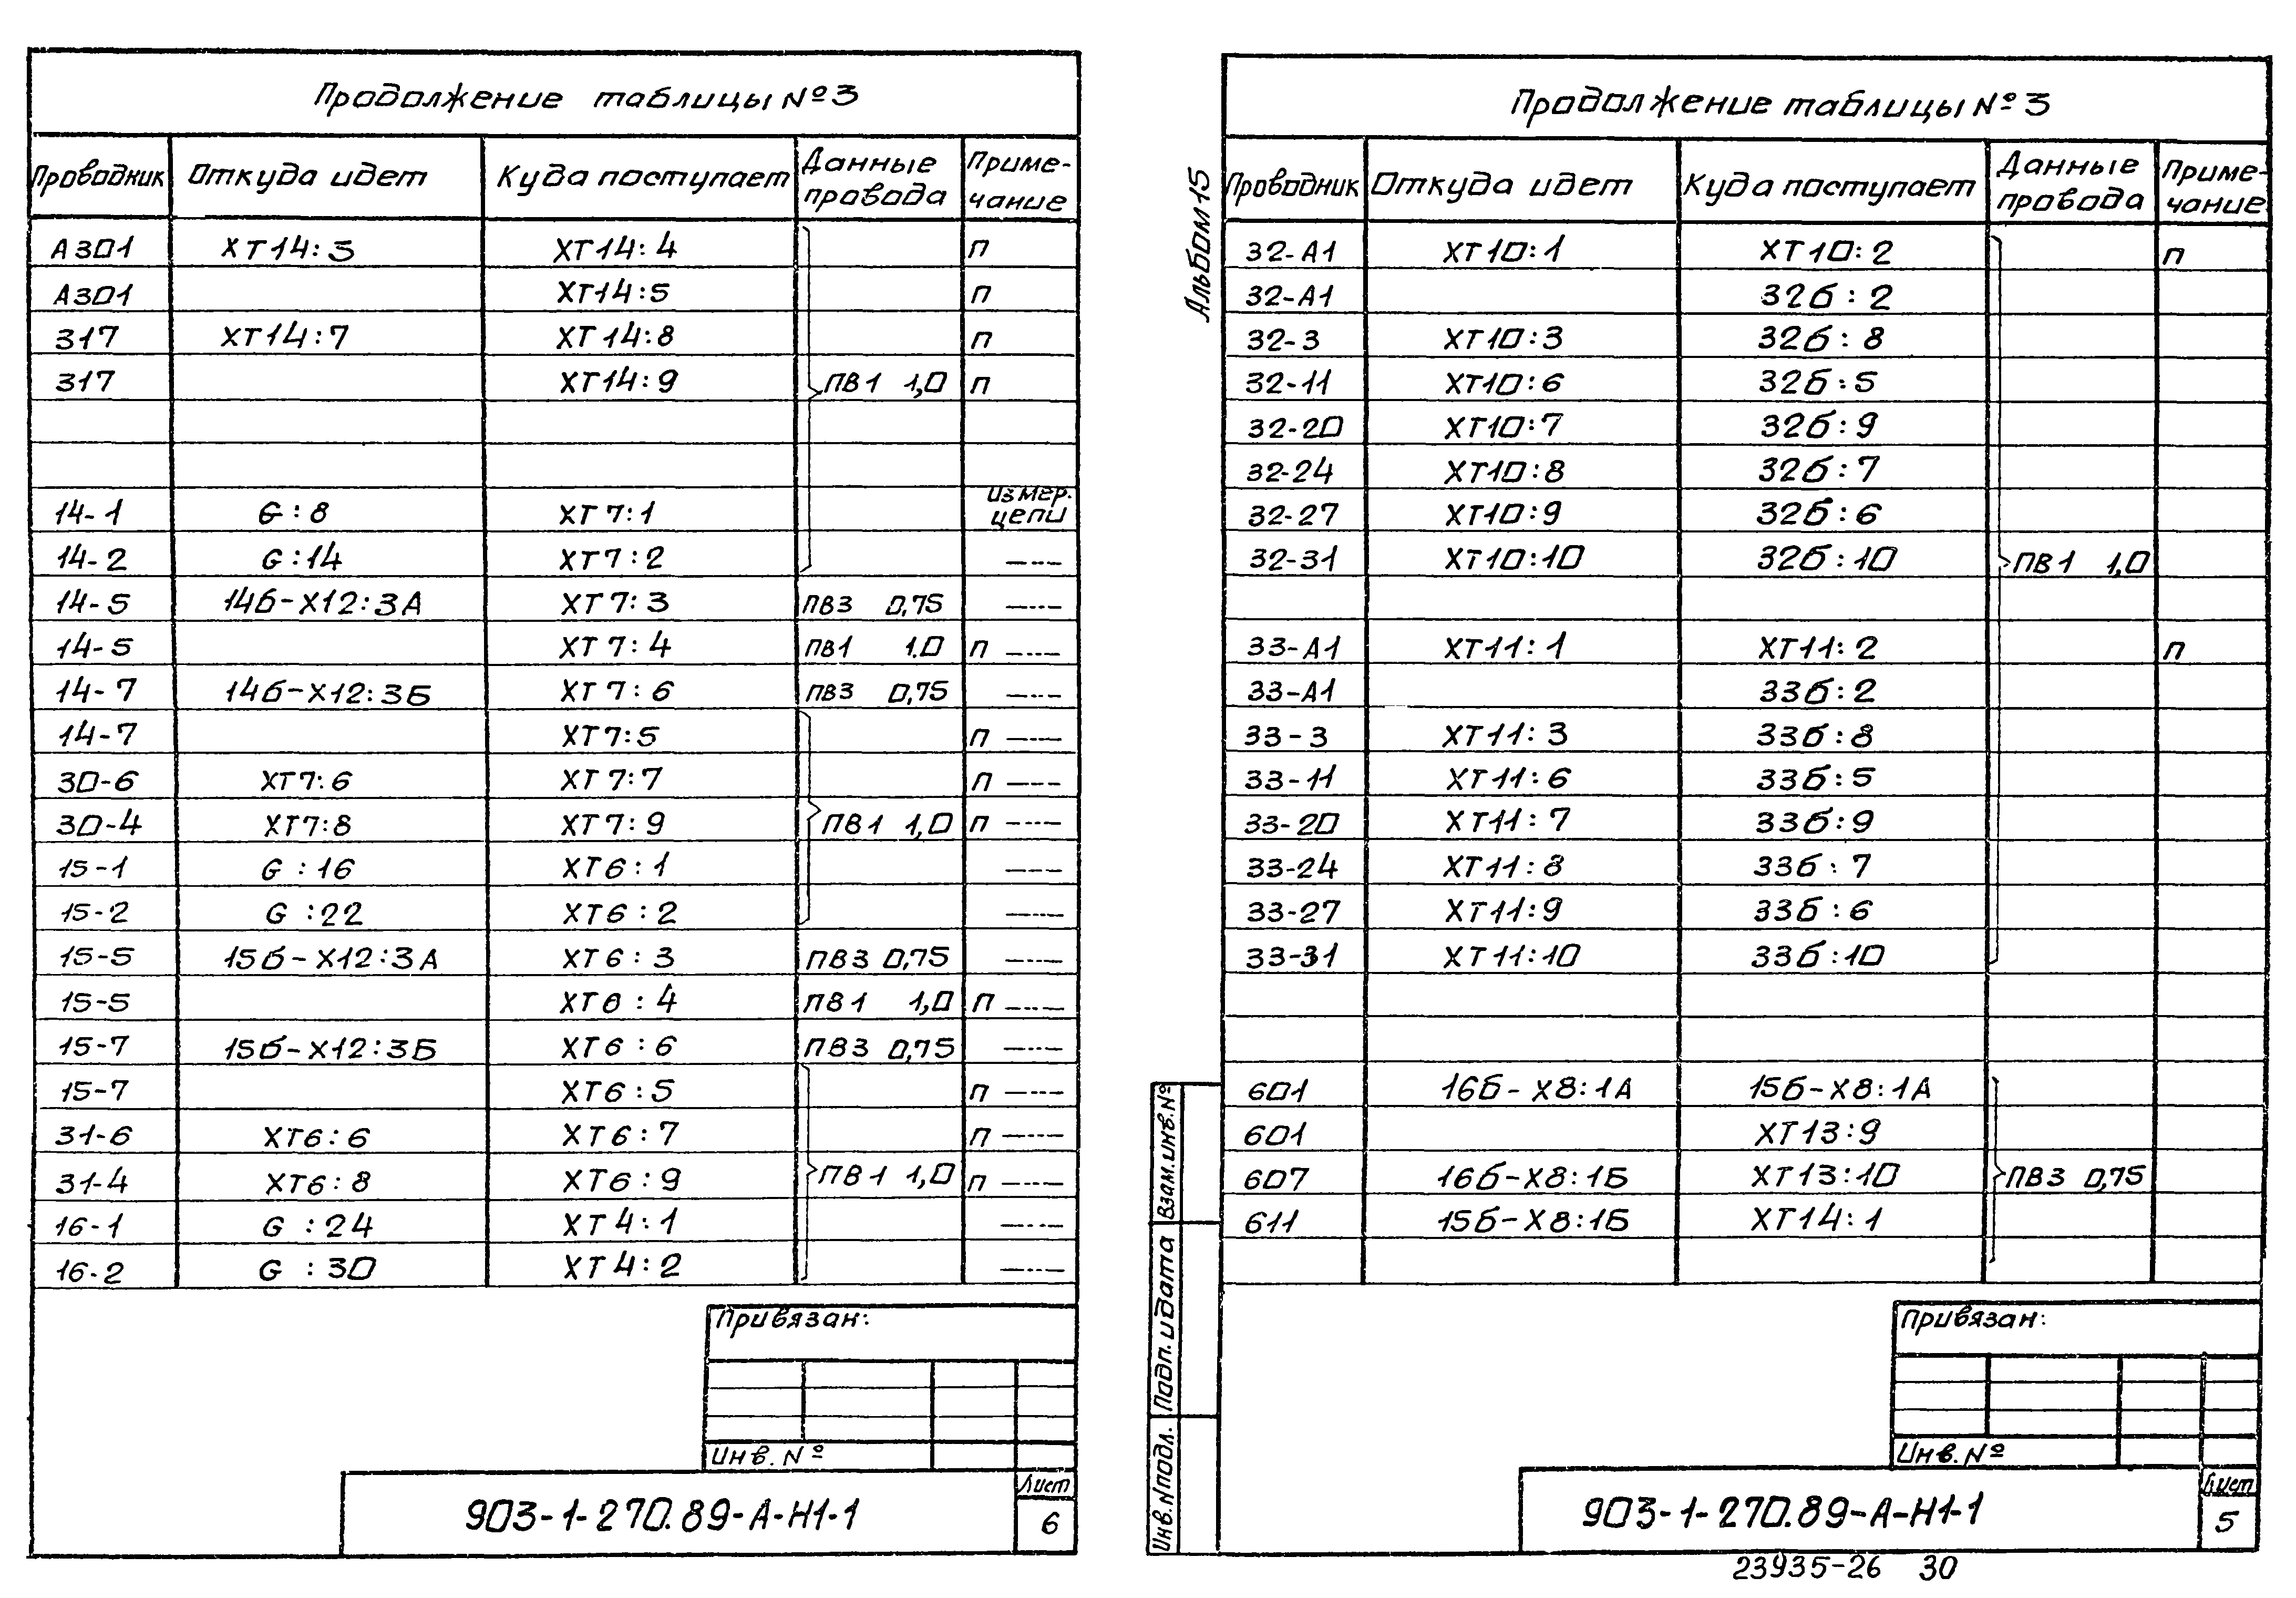 Продолжение таблицы №3
Проводник Откуда идет Куда поступает Данные провода Примечание
А301 ХТ14:3 ХТ14:4 п
А301 ХТ14:5 п
317 ХТ14:7 ХТ14:8 п
317 ХТ14:9 ПВ1 1,0 п
14-1 G:8 ХТ7:1 измер. цепи
14-2 G:14 ХТ7:2 —··—
14-5 14б-Х12:3А ХТ7:3 ПВ3 0,75 —··—
14-5 ХТ7:4 ПВ1 1.0 п —··—
14-7 14б-Х12:3Б ХТ7:6 ПВ3 0,75 —··—
14-7 ХТ7:5 п —··—
30-6 ХТ7:6 ХТ7:7 п —··—
30-4 ХТ7:8 ХТ7:9 ПВ1 1,0 п —··—
15-1 G:16 ХТ6:1 —··—
15-2 G:22 ХТ6:2 —··—
15-5 15б-Х12:3А ХТ6:3 ПВ3 0,75 —··—
15-5 ХТ6:4 ПВ1 1,0 п —··—
15-7 15б-Х12:3Б ХТ6:6 ПВ3 0,75 —··—
15-7 ХТ6:5 п —··—
31-6 ХТ6:6 ХТ6:7 п —··—
31-4 ХТ6:8 ХТ6:9 ПВ1 1,0 п —··—
16-1 G:24 ХТ4:1 —··—
16-2 G:30 ХТ4:2 —··—
Привязан:
Инв. №
903-1-270.89-А-Н1-1
Лист
6
Альбом 15
Продолжение таблицы №3
Проводник Откуда идет Куда поступает Данные провода Примечание
32-А1 ХТ10:1 ХТ10:2 п
32-А1 32б:2
32-3 ХТ10:3 32б:8
32-11 ХТ10:6 32б:5
32-20 ХТ10:7 32б:9
32-24 ХТ10:8 32б:7
32-27 ХТ10:9 32б:6
32-31 ХТ10:10 32б:10 ПВ1 1,0
33-А1 ХТ11:1 ХТ11:2 п
33-А1 33б:2
33-3 ХТ11:3 33б:8
33-11 ХТ11:6 33б:5
33-20 ХТ11:7 33б:9
33-24 ХТ11:8 33б:7
33-27 ХТ11:9 33б:6
33-31 ХТ11:10 33б:10
601 16б-Х8:1А 15б-Х8:1А
601 ХТ13:9
607 16б-Х8:1Б ХТ13:10 ПВ3 0,75
611 15б-Х8:1Б ХТ14:1
Взам.инв.№
Подп. и дата
Инв.№подл.
Привязан:
Инв. №
903-1-270.89-А-Н1-1
Лист
5
23935-26 30